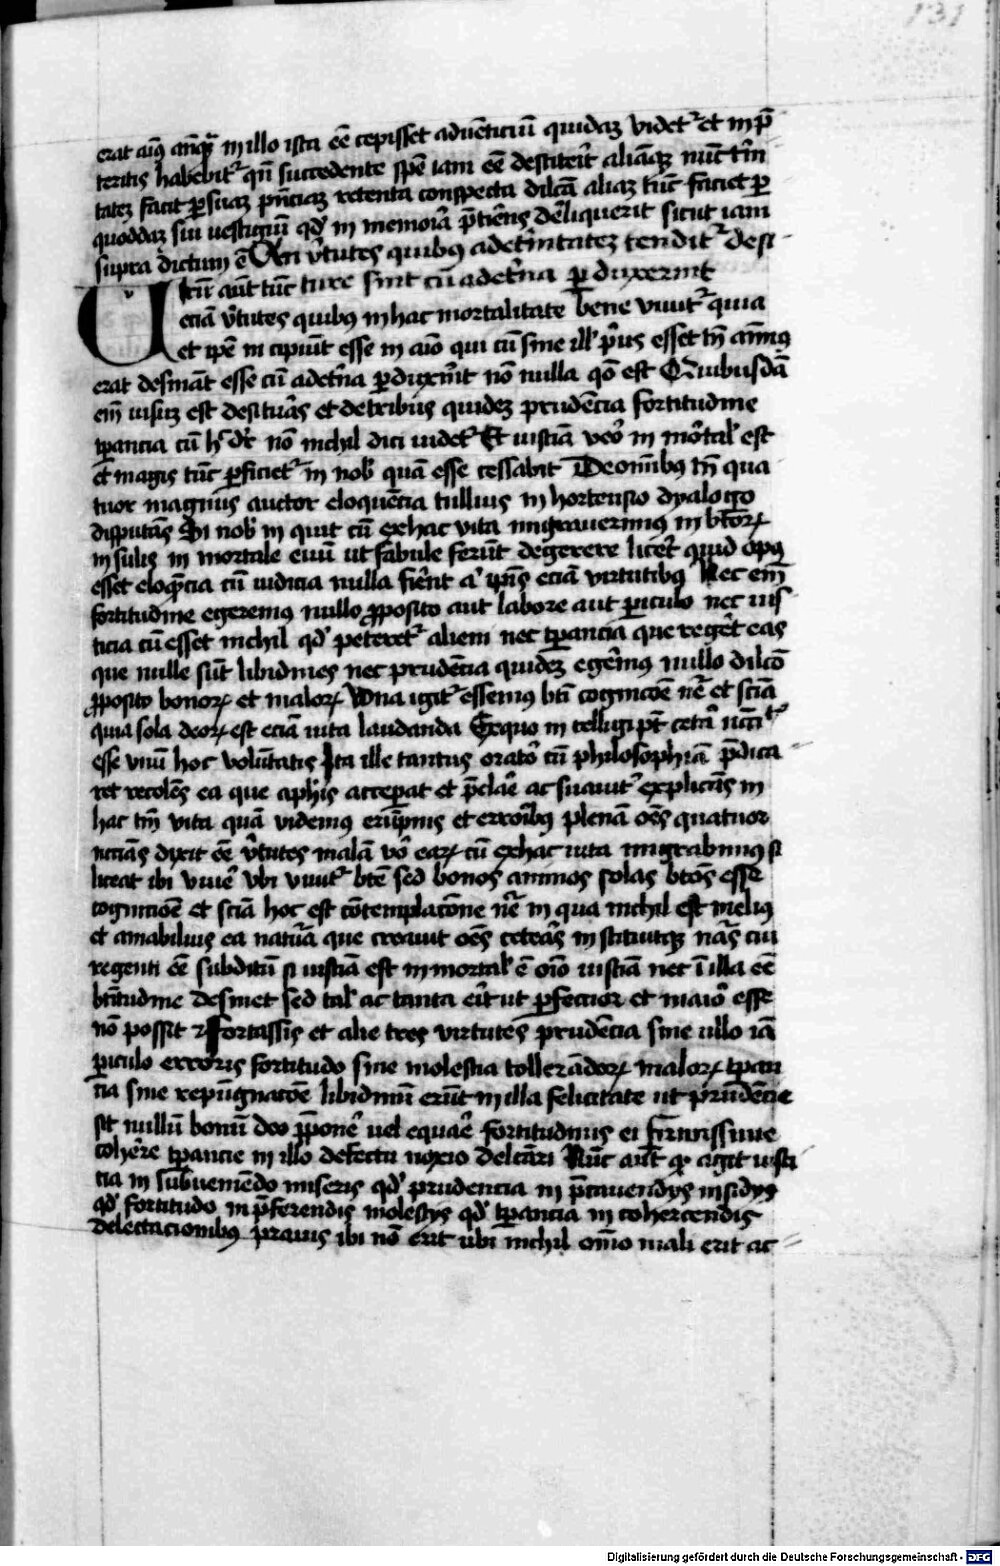 131
erat aīꝰ anq̄ꝫ in illo ista eē cepisset aduēticiū quidaꝫ videt᷑ et in p̄
teritis habebit᷑ qn̄ succedente spē iam eē destiterīt aliāqꝫ nūc t'ni
tateꝫ facit ꝑ suaꝫ pn̄ciaꝫ retenta conspecta dilcā aliaꝫ tūc faciet ꝑ
quoddaꝫ sui uestigiū qd' in memoīa p̄tiēns dēliquerit sicut iam
supra dictum ē An v̄tutes quibꝰ ad et'nitateꝫ tendit᷑ desi
Utrū aūt tūc turc sint cū ad et'na ꝑduxerint
eciā v̄tutes quibꝰ in hac mortalitate bene viuit᷑ quia
et ipē in cipiūt esse in aīo qui cū sine ill' pˈus esset tn̄ animꝰ
erat desināt esse cū ad et'na ꝑduxīnt nō nulla qō est Quibusdā
em̄ uisuꝫ est desituās et de tribus quideꝫ prudēcia fortitudine
tꝑancia cū h' dr̄ nō nichil dici uidet᷑ Et iusticiā veō in mōtal' est
et magis tūc ꝑficiet᷑ in nob' quā esse cessabit De oīnibꝰ tn̄ qua
tuor magnus auctor eloquēcia tullius in hortensio dyalogo
disputās Si nob' in quit cū ex hac vita migrauerimus in btōꝝ
in sulis in mortale euū ut fabule ferūt degerere licet' quid opꝰ
esset eloq̄cia cū iudicia nulla fieīnt a' ip̄is eciā virtutibꝰ Nec em̄
fortitudine egeremꝰ nullo ꝓposito aut labore aut ꝑiculo nec ius
ticia cū esset nichil qd' peteret᷑ alieni nec tꝑancia que regēt eas
que nulle sūt libidines nec prudēcia quideꝫ egēmꝰ nullo dilcō
ꝓposito bonoꝝ et maloꝝ Vna igit᷑ essemus bti cognicōe n̄re et sciā
quia sola deoꝝ est eciā uita laudanda Ex quo in telligi pt̄ cetā ncc̄it᷑
esse vnū hoc volūtatis Ita ille tantus oratō cū philosophiā p̄dica
ret recolēs ea que a ph'is acceꝑat et p̄claē ac suauit᷑ explicās in
hac tm̄ vita quā videmꝰ erūpnis et erroībꝰ plenā oēs quatuor
ncc̄iās dixit eē v̄tutes nulā vō eaꝝ cū ex hac uita migrabimꝰ si
liceat ibi viuē vbi viuit᷑ btē sed bonos animos solas btōs esse
cognicōē et sciā hoc est cōtemplacōne n̄re in qua nichil est melius
et amabilius ea natūa que creauit oēs ceteās instituitqꝫ nās cui
regenti eē subditū si iustiā est in mortal' ē oīo iustiā nec ī illa eē
btitudine desinet sed tal' ac tanta eīt ut ꝑfectior et maiō esse
nō possit ⁊ Fortassis et alie tres virtutes prudēcia sine ullo iā
ꝑiculo erroris fortitudo sine molestia tollerādoꝝ maloꝝ tꝑan
cia sine repūgnacōe libidinū erūt in illa felicitate ut prudēcie
sit nullū bonū deo p̄ponē uel equaē fortitudinis ei firmissime
cohēre tꝑancie in illo defectu noxio delcāri Nūc aūt qꝙ agit iusti
cia in subueniēdo miseris qd' prudencia in p̄cauendijs insidijs
qd' fortitudo in p̄ferendis molestijs qd' tꝑancia in cohercendis
delectacionibꝰ prauis ibi nō erit ubi nichil om̄o mali erit ac
Digitalisierung gefördert durch die Deutsche Forschungsgemeinschaft - DFG